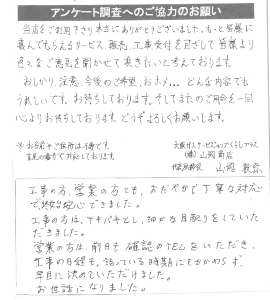 アンケート調査へのご協力のお願い
当店をご利用下さりありがとうございました。もっと皆様に
喜んでもらえるサービス、販売、工事受付を目ざして皆様より
色々なご意見を聞かせて頂きたいと考えております。
おしかり、注意、今後のご希望、おほめ…どんな内容でも
うれしいです。お待ちしております。そしてまたのご用命を一同
心よりお待ちしております。どうぞよろしくお願いします。
(株)山岡商店
工事の方、営業の方とも、おだやかで丁寧な対応
で終始安心できました。
工事の方は、テキパキとし、細かな目配りをしていた
だきました。
営業の方は、前日も確認のTELをいただき、
工事の日程も、混んでいる時期にもかかわらず、
早目に決めていただけました。
お世話になりました。